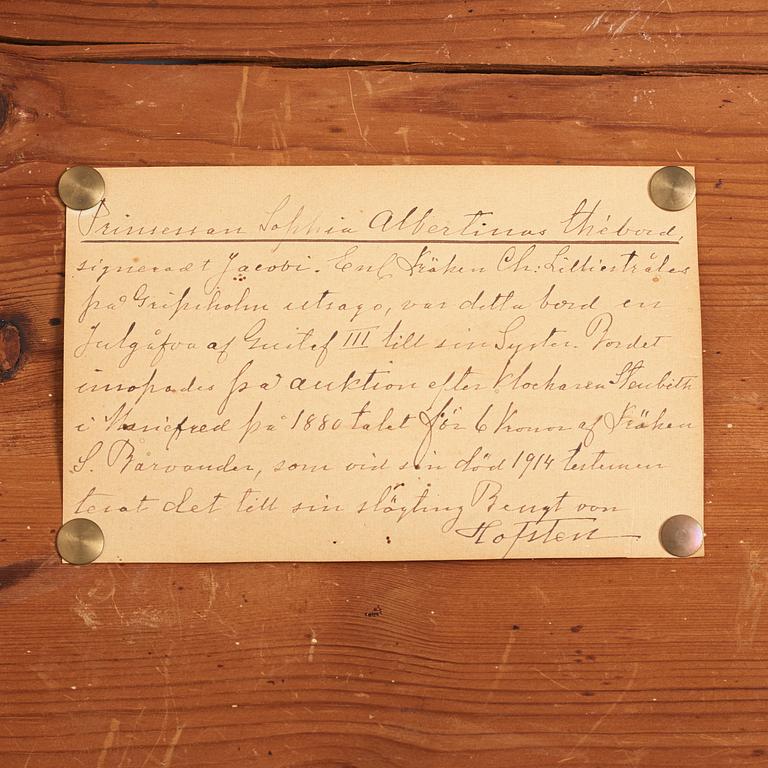 Prinsessan Sophia Albertinas thébord,
signeradt Jacobi. Enl. Fröken Ch: Lilliestråles
på Gripsholm utsago, var detta bord en
Julgåfva af Gustef III till sin Syster. Bordet
inropades på auktion efter klockaren Stenbeth
i Mariefred på 1880 talet för 6 kronor af Fröken
S. Rårvander, som vid sin död 1914 testumen
terat det till sin slägting Bengt von
Hofsten